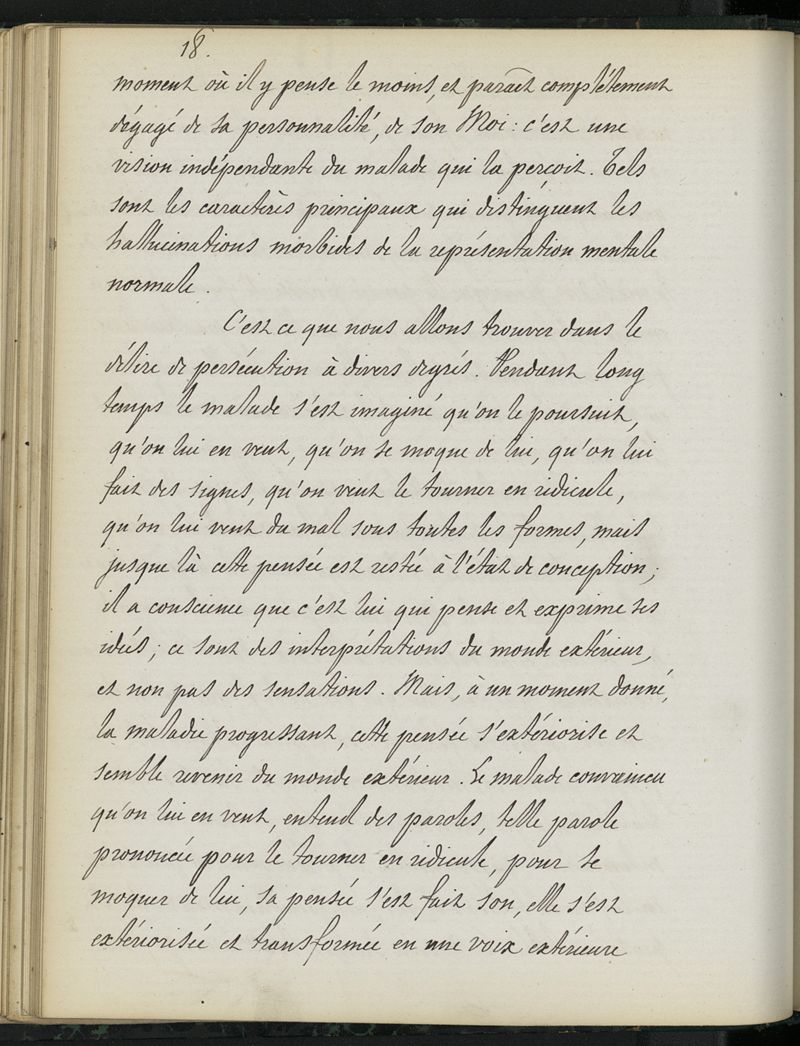 18.
moment où il y pense le moins, et paraît complétement
dégagé de sa personnalité, de son Moi : c'est une
vision indépendante du malade qui la perçoit. Tels
sont les caractères principaux qui distinguent les
hallucinations morbides de la représentation mentale
normale.
C'est ce que nous allons trouver dans le
délire de persécution à divers degrés. Pendant long
temps le malade s'est imaginé qu'on le poursuit,
qu'on lui en veut, qu'on se moque de lui, qu'on lui
fait des signes, qu'on veut le tourner en ridicule,
qu'on lui veut du mal sous toutes les formes, mais
jusque là cette pensée est restée à l'état de conception ;
il a conscience que c'est lui qui pense et exprime ses
idées ; ce sont des interprétations du monde extérieur,
et non pas des sensations. Mais, à un moment donné,
la maladie progressant, cette pensée s'extériorise et
semble revenir du monde extérieur. Le malade convaincu
qu'on lui en veut, entend des paroles, telle parole
prononcée pour le tourner en ridicule, pour se
moquer de lui, sa pensée s'est fait son, elle s'est
extériorisée et transformée en une voix extérieure